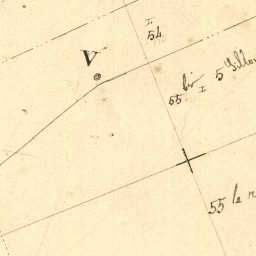 I
54
V
55 bis
I
5 Sillon
55 le